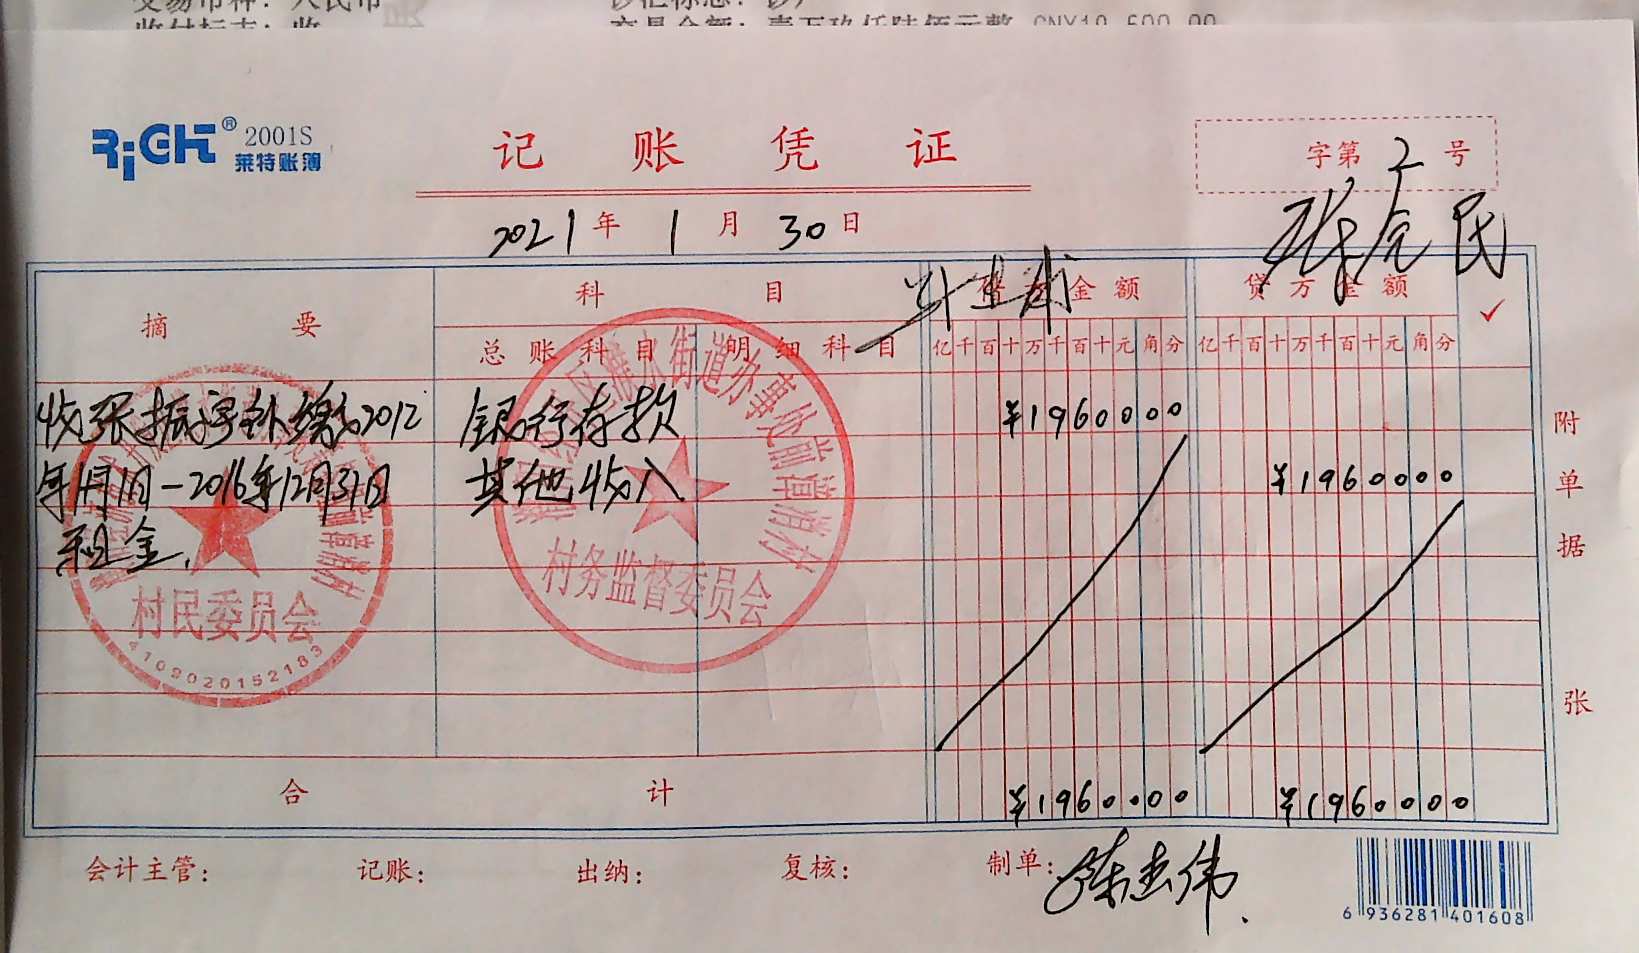 交易币种：人民币
收付标志：收
交易金额：壹万玖仟陆佰元整 CNY19,600.00
RiGHT® 2001S
莱特账簿
记 账 凭 证
字第 2 号
2021 年 1 月 30 日
摘 要
科 目
借方金额
贷方金额
✓
总账科目
明细科目
亿千百十万千百十元角分
亿千百十万千百十元角分
收张振宇补缴2012
年1月1日-2016年12月31日
租金.
银行存款
¥1960000
其他收入
¥1960000
村民委员会
4109020152183
街道办事处前漳消村
村务监督委员会
合 计
¥1960000
¥1960000
附单据 张
会计主管：
记账：
出纳：
复核：
制单：
6 936281 401608